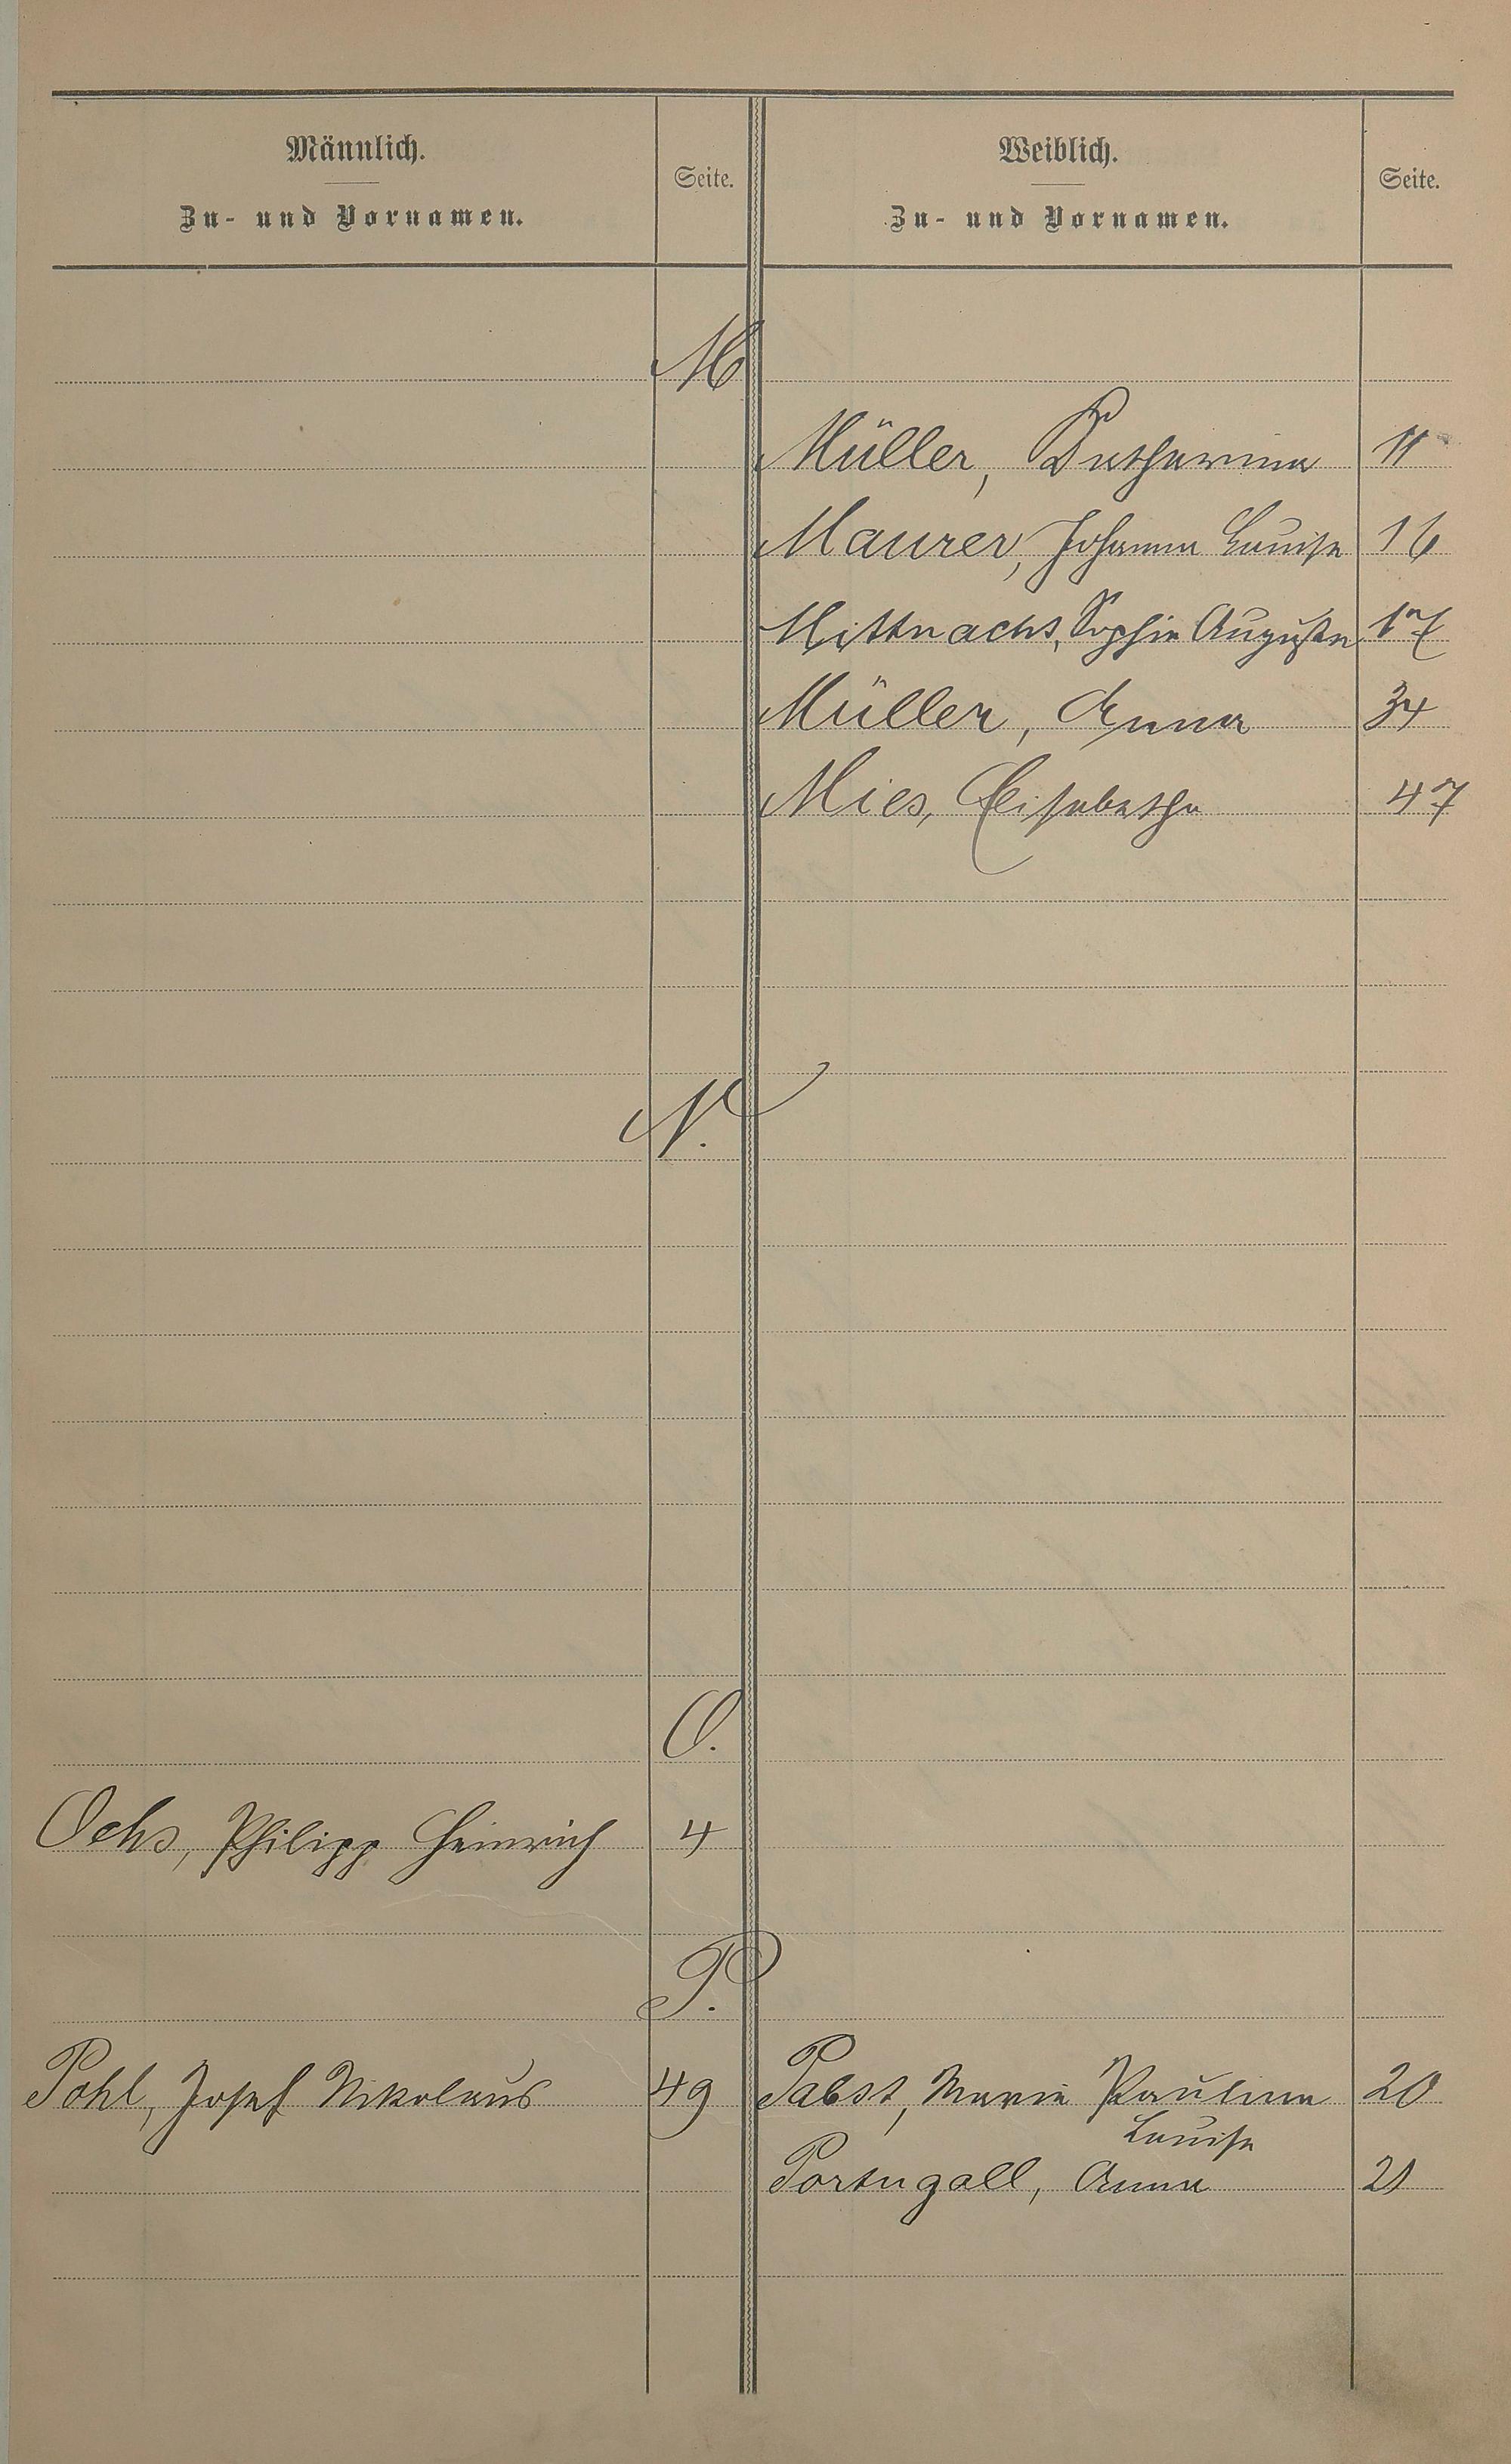 Männlich.
Zu- und Vornamen.
Seite.
Weiblich.
Zu- und Vornamen.
Seite.
M
Müller, Katharina 11
Maurer, Johanna Louise 16
Mittnacht, Sophie Auguste 17
Müller, Anna 34
Mies, Elisabetha 47
N.
O.
Ochs, Philipp Heinrich 4
P.
Pohl, Josef Nikolaus 49
Pabst, Marie Pauline 20
Louise
Portugall, Anna 21